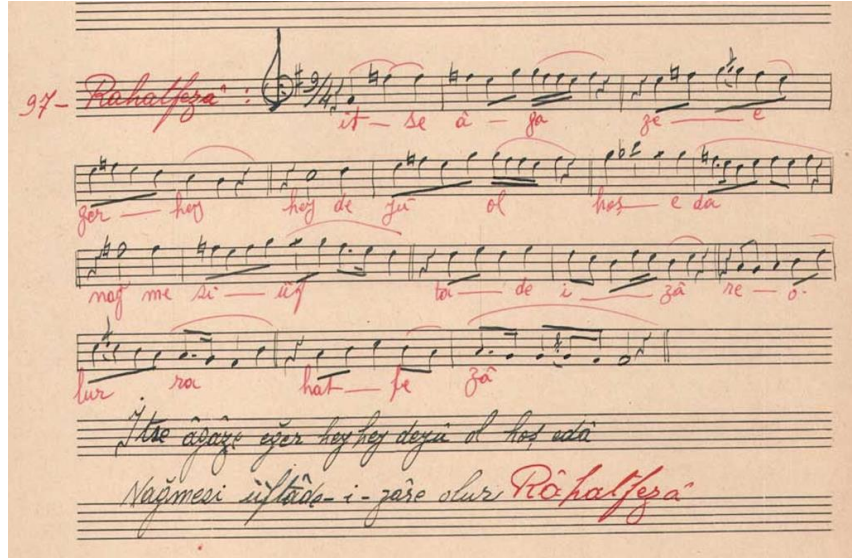 97- Rahatfezâ :
9/4
it - se â - ga ze - e
ger - hey hey de yü ol hoş - e da
nağ me si - üf ta - de i - zâ re - o -
lur ra hat - fe zâ
İtse âgâze eğer hey hey deyü ol hoş edâ
Nağmesi üftâde-i-zâre olur Râhatfezâ